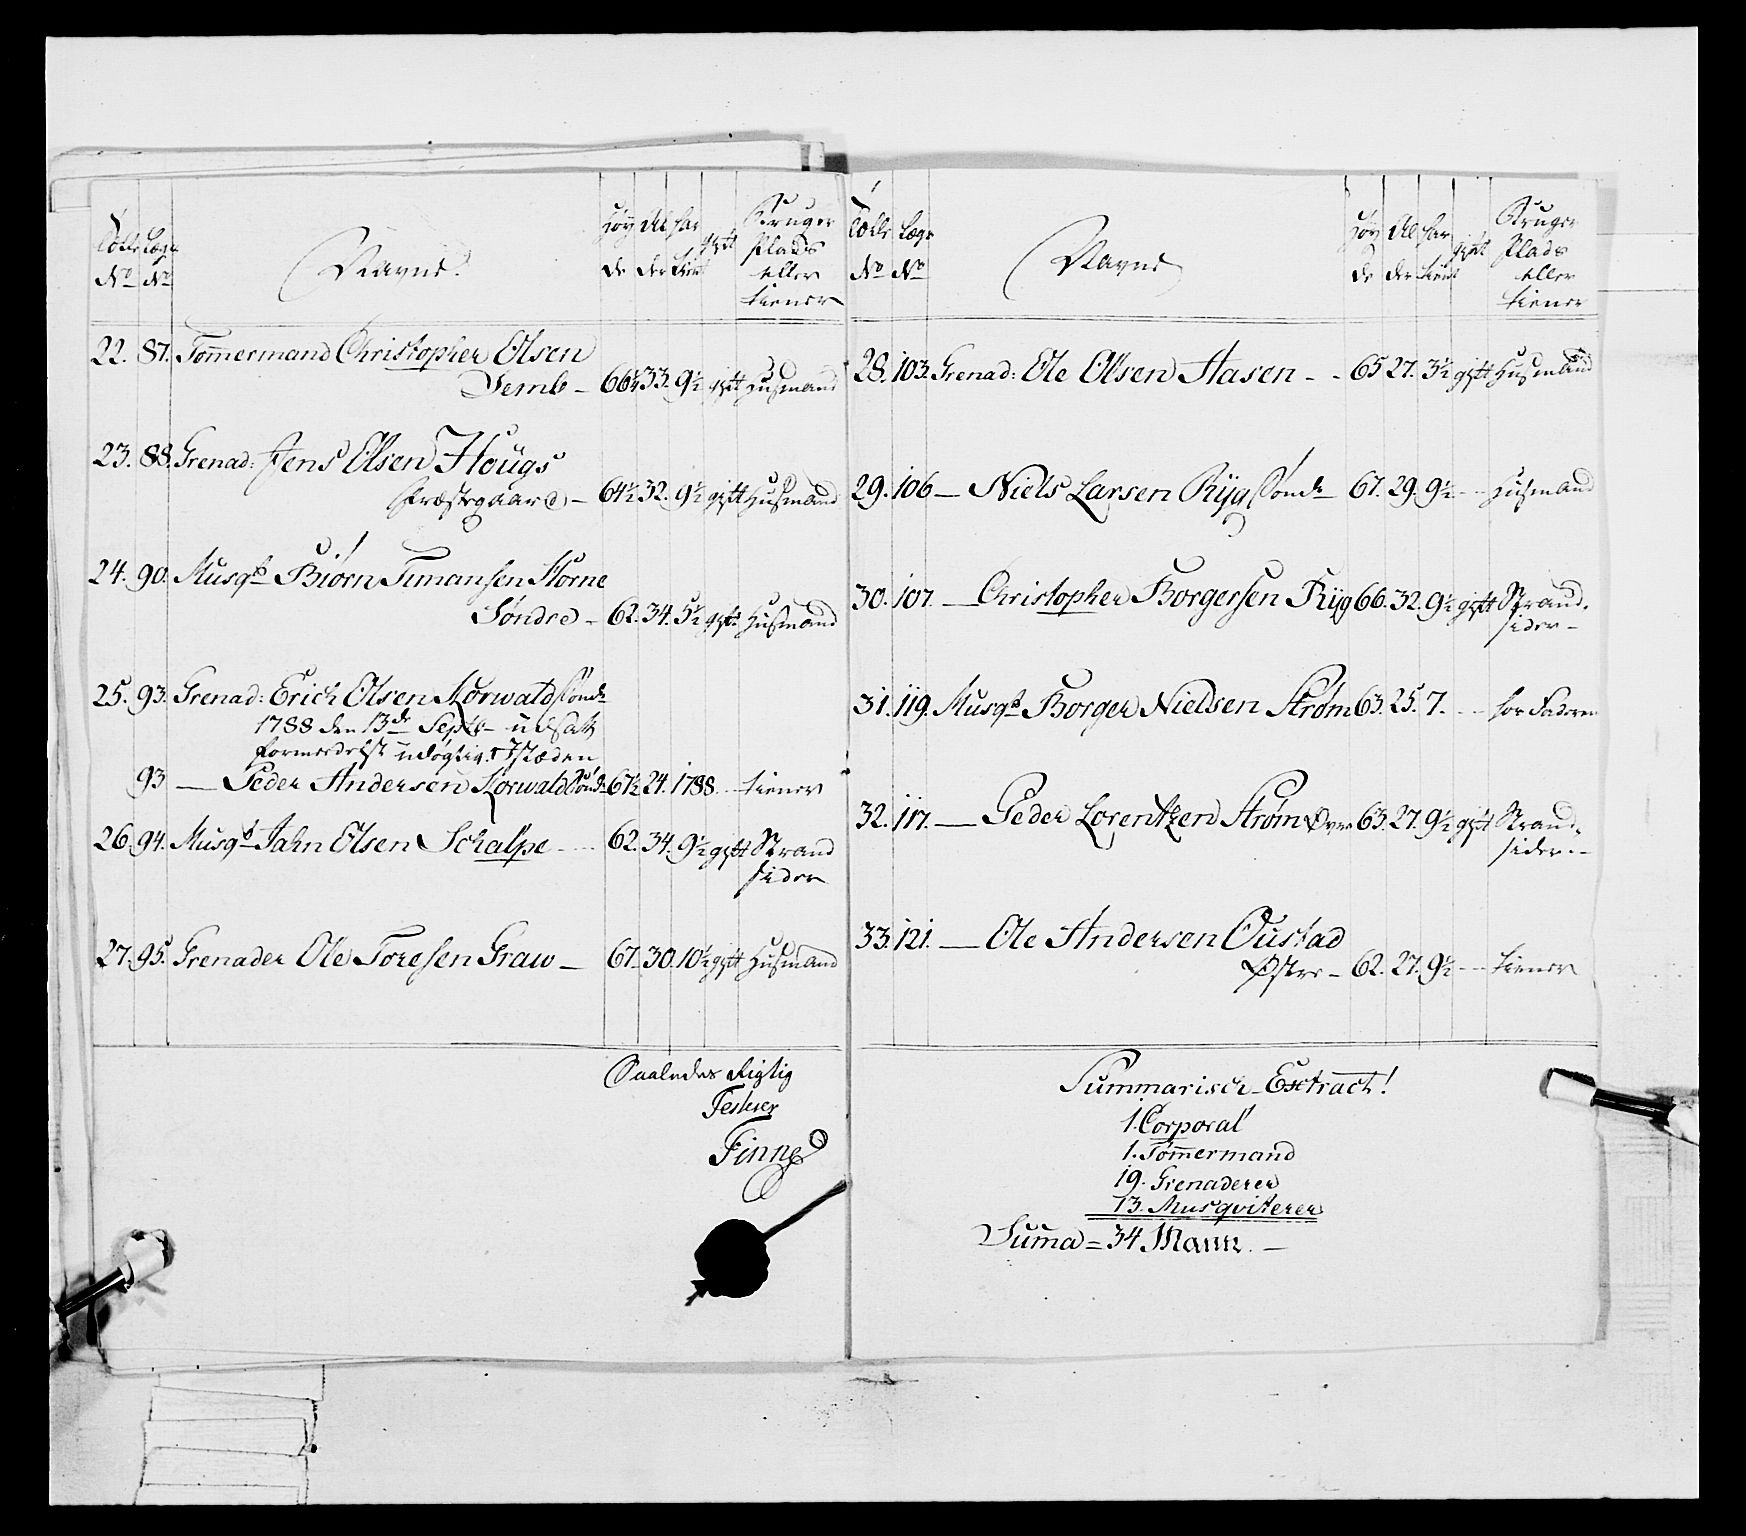 Rolle Lægs Navne. Høy Al har gift Bruger
No No de der tient Plads
eller
tiener
22. 87. Tømmermand Christopher Olsen
Semb - 66½ 33. 9½ gift Husmand
23. 88. Grenad: Jens Olsen Hougs
Præstegaard - 64½ 32. 9½ gift Husmand
24. 90. Musqt Biørn Timansen Horne
Søndre - 62. 34. 5½ gift Husmand
25. 93. Grenad: Erich Olsen Korwald Sønd:
1788 den 13de Septb- udsatt
formedelst udøgtig. Istæden
93 — Peder Andersen Korwald Sønd: 67½ 24. 1788. - tiener
26. 94. Musqt Jahn Olsen Schalpe - - - 62. 34. 9½ gift Strand
sider
27. 95. Grenader Ole Toresen Graw - 67. 30. 10½ gift Husmand
Saaledes Rigtig
Testerer
Finne
Rolle Lægs Navne Høy Al har gift Bruger
No No de der tient Plads
eller
tiener
28. 103. Grenad: Ole Olsen Aasen - - 65 27. 3½ gift Husmand
29. 106 — Niels Larsen Ryg Sønd: 67. 29. 9½ - - Husmand
30. 107. — Christopher Borgersen Ryg 66. 32. 9½ gift Strand-
sider -
31. 119. Musqt Borger Nielsen Strøm 63. 25. 7. - - hos Faderen
32. 117. — Peder Lorentzen Strøm Øvre 63. 27. 9½ gift Strand-
sider. -
33. 121. — Ole Andersen Oustad
Østre - 62. 27. 9½ - - tiener
Summarisch Extract!
1. Corporal
1. Tømmermand
19. Grenaderer
13. Musqviterer
Suma = 34 Mann. —